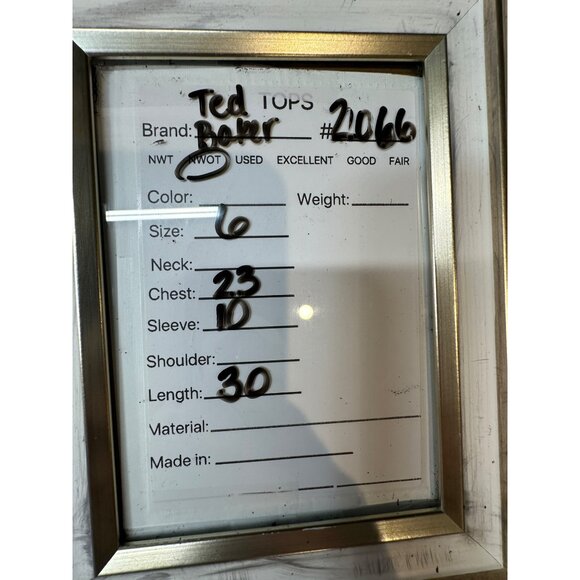 Ted TOPS
Brand: Baker #2066
NWT NWOT USED EXCELLENT GOOD FAIR
Color: Weight:
Size: 6
Neck:
Chest: 23
Sleeve: 10
Shoulder:
Length: 30
Material:
Made in: